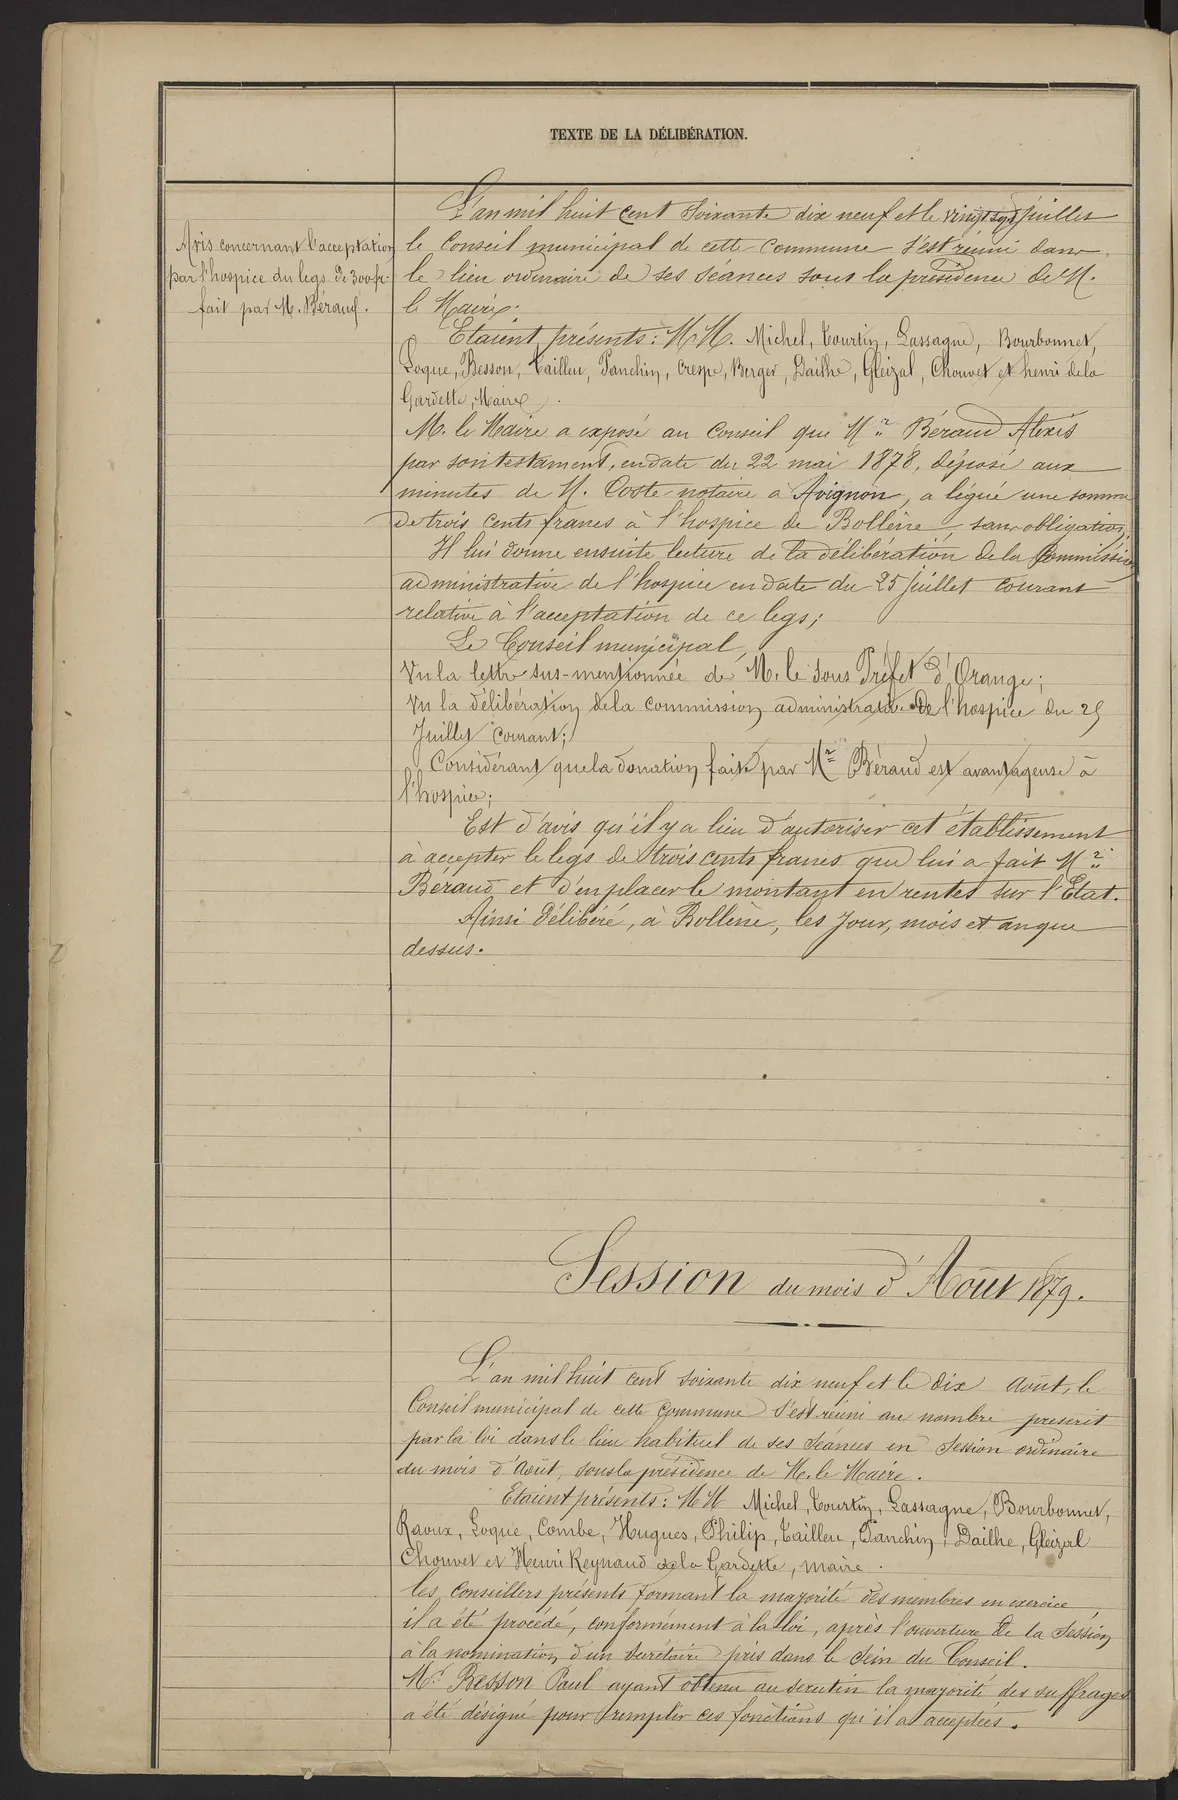 TEXTE DE LA DÉLIBÉRATION.
Avis concernant l'acceptation
par l'hospice du legs de 300 fr.
fait par M. Béraud.
L'an mil huit cent soixante dix neuf et le vingt sept Juillet
le Conseil municipal de cette Commune s'est réuni dans
le lieu ordinaire de ses séances sous la présidence de M.
le Maire.
Etaient présents: MM. Michel, Tourtin, Lassagne, Bourbonnet,
Loque, Besson, Tailleu, Panchin, Crespe, Berger, Dailhe, Gleizal, Chouvet et henri de la
Gardette, Maire.
M. le Maire a exposé au Conseil que Mr. Béraud Alexis
par son testament, en date du 22 mai 1878, déposé aux
minutes de M. Coste notaire à Avignon, a légué une somme
de trois cents francs à l'hospice de Bollène, sans obligation;
Il lui donne ensuite lecture de la délibération de la Commission
administrative de l'hospice en date du 25 Juillet courant
relative à l'acceptation de ce legs;
Le Conseil municipal,
Vu la lettre sus-mentionnée de M. le Sous Préfet d'Orange;
Vu la délibération de la commission administrative de l'hospice du 25
Juillet courant;
Considérant que la donation faite par Mr. Béraud est avantageuse à
l'hospice;
Est d'avis qu'il y a lieu d'autoriser cet établissement
à accepter le legs de trois cents francs que lui a fait Mr.
Béraud et d'en placer le montant en rentes sur l'Etat.
Ainsi délibéré, à Bollène, les jour, mois et an que
dessus.
Session du mois d'Août 1879.
L'an mil huit cent soixante dix neuf et le dix Août, le
Conseil municipal de cette Commune s'est réuni au nombre prescrit
par la loi dans le lieu habituel de ses séances en session ordinaire
du mois d'Août, sous la présidence de M. le Maire.
Etaient présents: MM Michel, Tourtin, Lassagne, Bourbonnet,
Raoux, Loque, Combe, Hugues, Philip, Tailleu, Panchin, Dailhe, Gleizal
Chouvet et Henri Reynaud de la Gardette, maire.
les Conseillers présents formant la majorité des membres en exercice,
il a été procédé, conformément à la loi, après l'ouverture de la session
à la nomination d'un secrétaire pris dans le sein du Conseil.
Mr. Besson Paul ayant obtenu au scrutin la majorité des suffrages
a été désigné pour remplir ces fonctions qu'il a acceptées.